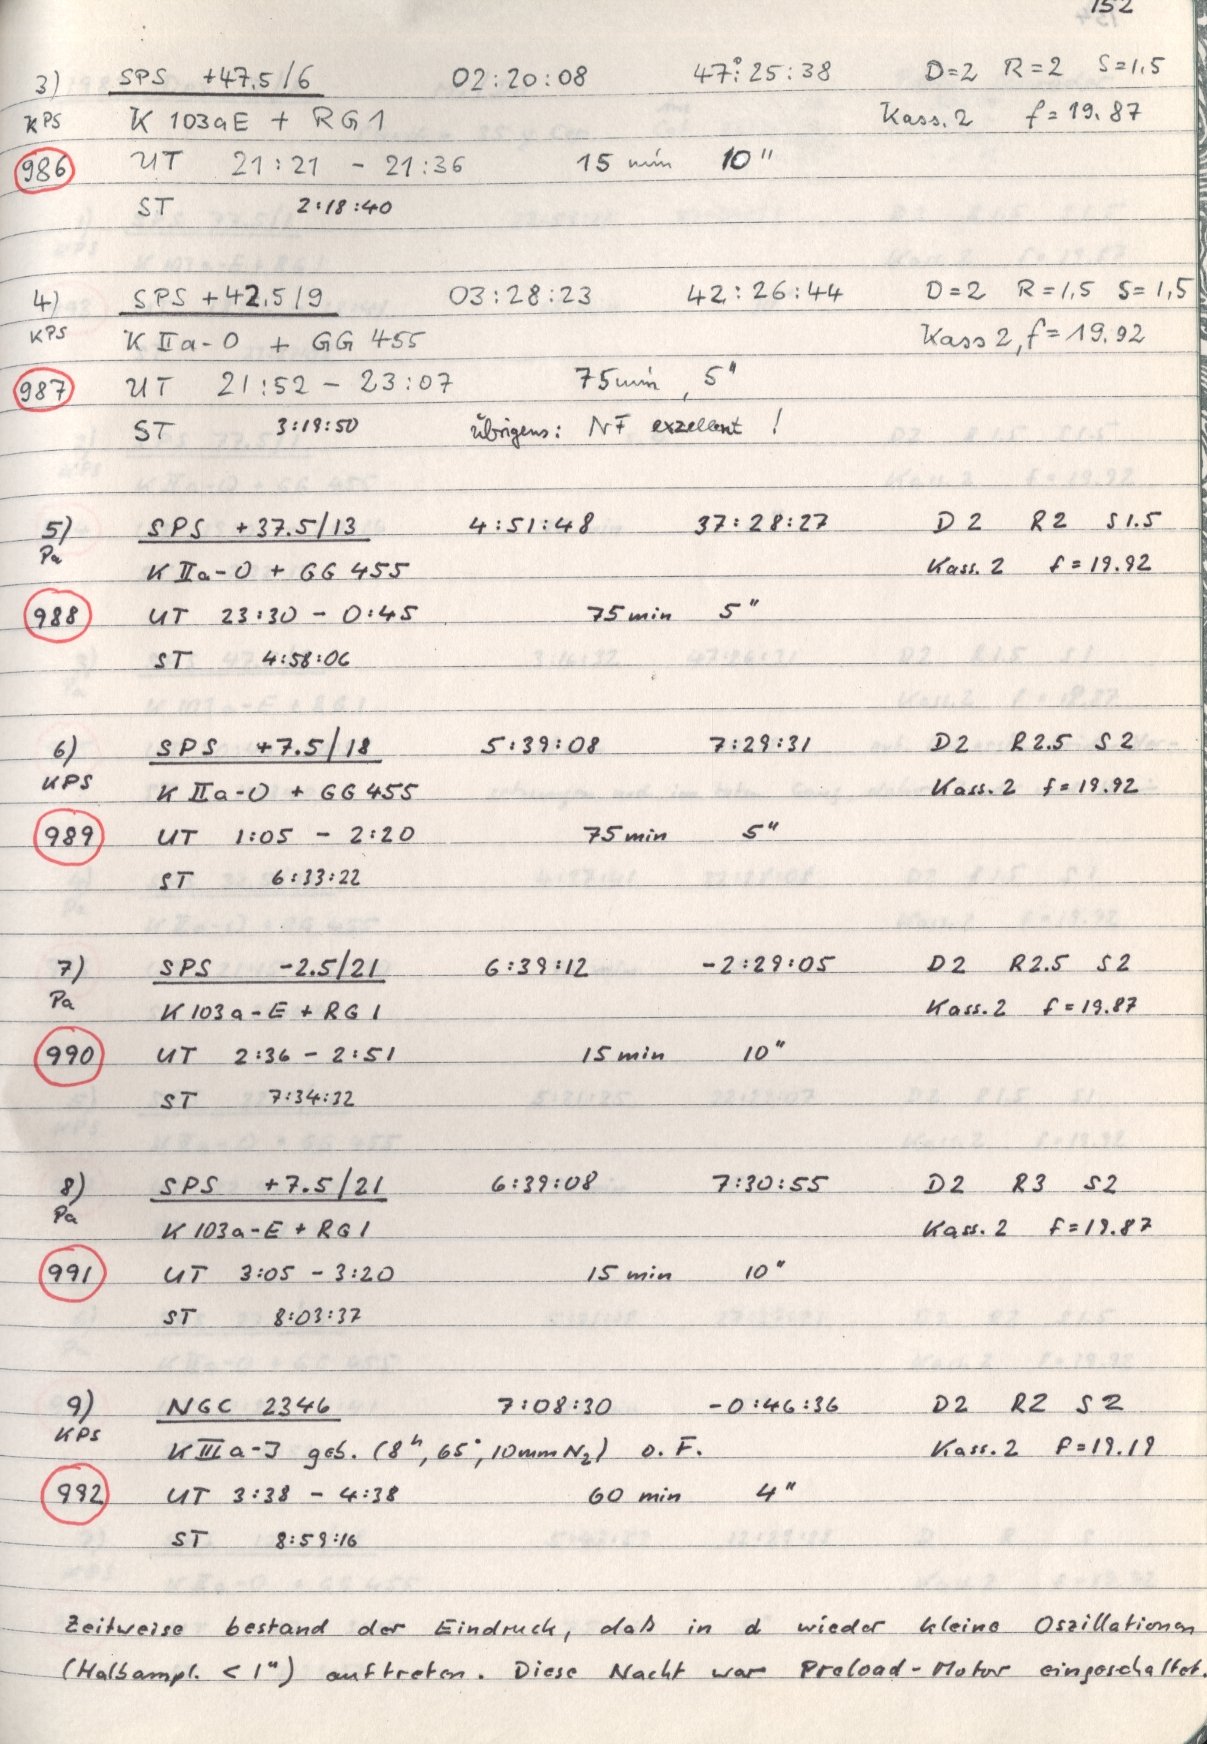 152
3) SPS +47.5/6 02:20:08 47°:25:38 D=2 R=2 S=1,5
KPS K 103aE + RG1 Kass.2 f=19.87
986 UT 21:21 - 21:36 15 min 10"
ST 2:18:40
4) SPS +42.5/9 03:28:23 42:26:44 D=2 R=1,5 S=1,5
KPS K IIa-O + GG 455 Kass 2, f=19.92
987 UT 21:52 - 23:07 75min, 5"
ST 3:19:50 übrigens: NF exzellent!
5) SPS +37.5/13 4:51:48 37:28:27 D2 R2 S1.5
Pa K IIa-O + GG 455 Kass.2 f=19.92
988 UT 23:30 - 0:45 75min 5"
ST 4:58:06
6) SPS +7.5/18 5:39:08 7:29:31 D2 R2.5 S2
KPS K IIa-O + GG455 Kass.2 f=19.92
989 UT 1:05 - 2:20 75min 5"
ST 6:33:22
7) SPS -2.5/21 6:39:12 -2:29:05 D2 R2.5 S2
Pa K103a-E + RG1 Kass.2 f=19.87
990 UT 2:36 - 2:51 15min 10"
ST 7:34:32
8) SPS +7.5/21 6:39:08 7:30:55 D2 R3 S2
Pa K103a-E + RG1 Kass.2 f=19.87
991 UT 3:05 - 3:20 15min 10"
ST 8:03:37
9) NGC 2346 7:08:30 -0:46:36 D2 R2 S2
KPS K IIIa-J geb. (8h, 65°, 10mm N2) o. F. Kass.2 f=19.19
992 UT 3:38 - 4:38 60 min 4"
ST 8:59:16
Zeitweise bestand der Eindruck, daß in d wieder kleine Oszillationen
(Halbampl. < 1") auftreten. Diese Nacht war Preload-Motor eingeschaltet.